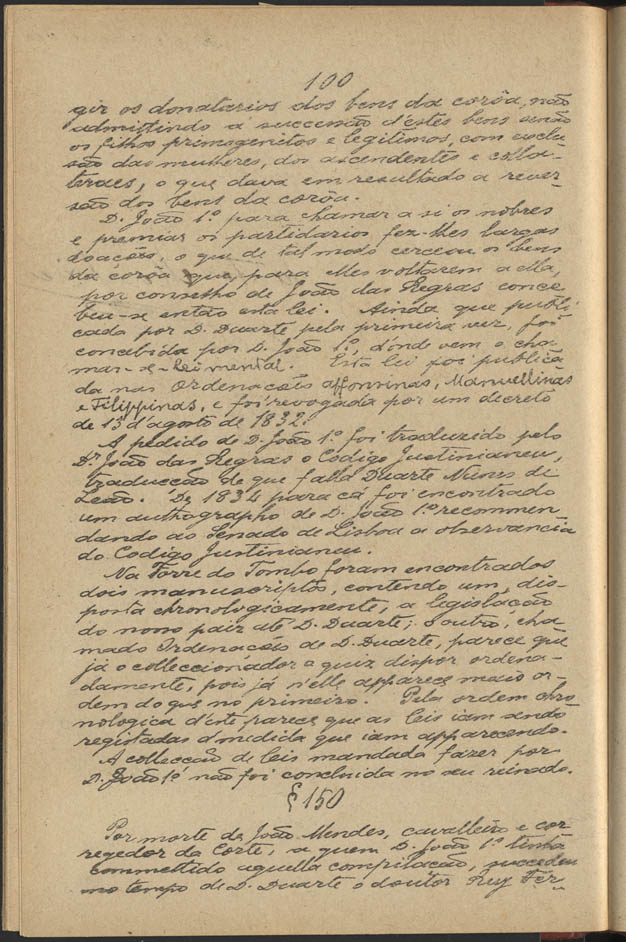 100
gir os donatarios dos bens da corôa, não
admittindo á successão d'estes bens senão
os filhos primogenitos e legitimos, com exclu-
são das mulheres, dos ascendentes e colla-
teraes, o que dava em resultado a rever-
são dos bens da corôa.
D. João 1º para chamar a si os nobres
e premiar os partidarios fez-lhes largas
doações, o que de tal modo cerceou os bens
da corôa que, para elles voltarem a ella,
por conselho de João das Regras conce
beu-se então esta lei. Ainda que publi
cada por D. Duarte pela primeira vez, foi
concebida por D. João 1º, d'onde vem o cha-
mar-se-lei mental. Esta lei foi publica
da nas Ordenações affonsinas, Manuellinas
e Filippinas, e foi revogada por um decreto
de 13 d'agosto de 1832.
A pedido de D. João 1º foi traduzido pelo
Dr João das Regras o Codigo Justinianeu,
traducção de que falla Duarte Nunes de
Leão. De 1834 para cá foi encontrado
um authographo de D. João 1º recommen-
dando ao Senado de Lisboa a observancia
do Codigo Justinianeu.
Na Torre do Tombo foram encontrados
dois manuscriptos, contendo um, dis-
posta chronologicamente, a legislação
do nosso paiz até D. Duarte; o outro, cha-
mado Ordenações de D. Duarte, parece que
já o colleccionador a quiz dispor ordena-
damente, pois já n'elle apparece maior or-
dem do que no primeiro. Pela ordem chro
nologica d'este parece que as leis iam sendo
registadas á medida que iam apparecendo.
A collecção de leis mandada fazer por
D. João 1º não foi concluida no seu reinado.
§ 150
Por morte de João Mendes, cavalleiro e cor-
regedor da Corte, a quem D. João 1º tinha
commettido aquella compilação, succedeu
no tempo de D. Duarte o doutor Ruy Fer-